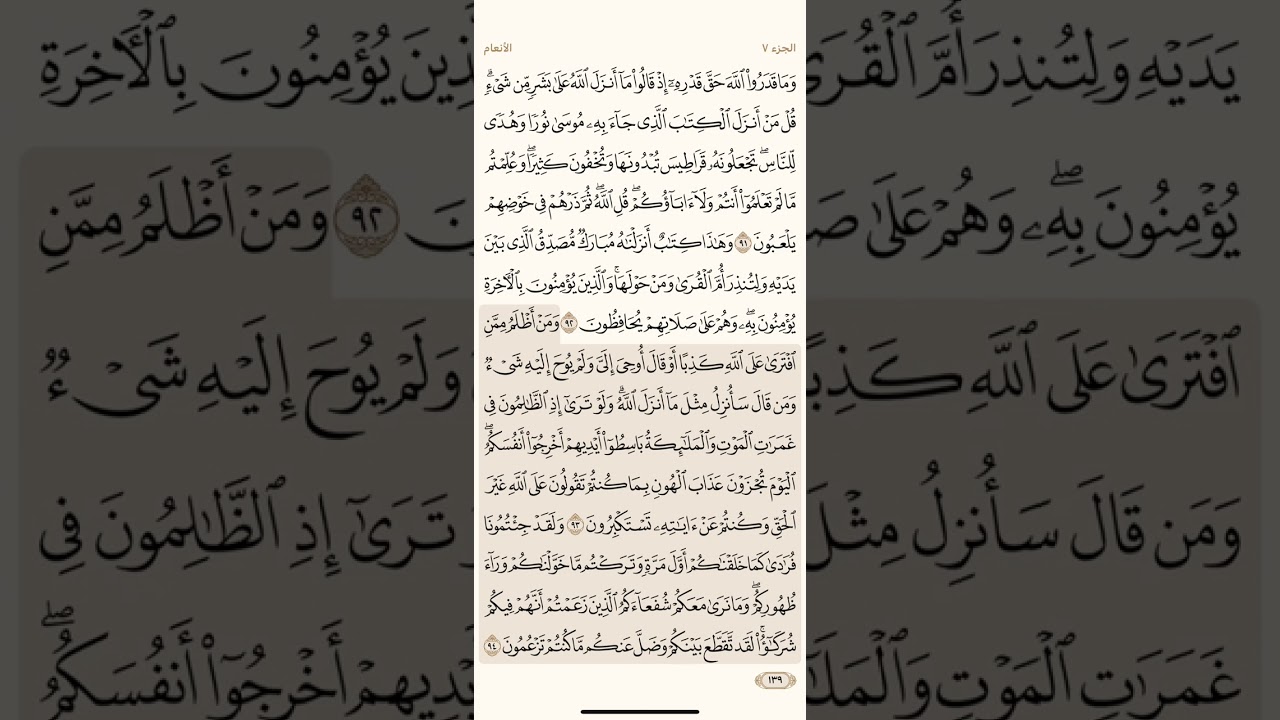 الجزء ٧
الأنعام
وَمَا قَدَرُواْ ٱللَّهَ حَقَّ قَدۡرِهِۦٓ إِذۡ قَالُواْ مَآ أَنزَلَ ٱللَّهُ عَلَىٰ بَشَرٖ مِّن شَيۡءٖۗ
قُلۡ مَنۡ أَنزَلَ ٱلۡكِتَٰبَ ٱلَّذِي جَآءَ بِهِۦ مُوسَىٰ نُورٗا وَهُدٗى
لِّلنَّاسِۖ تَجۡعَلُونَهُۥ قَرَاطِيسَ تُبۡدُونَهَا وَتُخۡفُونَ كَثِيرٗاۖ وَعُلِّمۡتُم
مَّا لَمۡ تَعۡلَمُوٓاْ أَنتُمۡ وَلَآ ءَابَآؤُكُمۡۖ قُلِ ٱللَّهُۖ ثُمَّ ذَرۡهُمۡ فِي خَوۡضِهِمۡ
يَلۡعَبُونَ ٩١ وَهَٰذَا كِتَٰبٌ أَنزَلۡنَٰهُ مُبَارَكٞ مُّصَدِّقُ ٱلَّذِي بَيۡنَ
يَدَيۡهِ وَلِتُنذِرَ أُمَّ ٱلۡقُرَىٰ وَمَنۡ حَوۡلَهَاۚ وَٱلَّذِينَ يُؤۡمِنُونَ بِٱلۡأٓخِرَةِ
يُؤۡمِنُونَ بِهِۦۖ وَهُمۡ عَلَىٰ صَلَاتِهِمۡ يُحَافِظُونَ ٩٢ وَمَنۡ أَظۡلَمُ مِمَّنِ
ٱفۡتَرَىٰ عَلَى ٱللَّهِ كَذِبًا أَوۡ قَالَ أُوحِيَ إِلَيَّ وَلَمۡ يُوحَ إِلَيۡهِ شَيۡءٞ
وَمَن قَالَ سَأُنزِلُ مِثۡلَ مَآ أَنزَلَ ٱللَّهُۗ وَلَوۡ تَرَىٰٓ إِذِ ٱلظَّٰلِمُونَ فِي
غَمَرَٰتِ ٱلۡمَوۡتِ وَٱلۡمَلَٰٓئِكَةُ بَاسِطُوٓاْ أَيۡدِيهِمۡ أَخۡرِجُوٓاْ أَنفُسَكُمُۖ
ٱلۡيَوۡمَ تُجۡزَوۡنَ عَذَابَ ٱلۡهُونِ بِمَا كُنتُمۡ تَقُولُونَ عَلَى ٱللَّهِ غَيۡرَ
ٱلۡحَقِّ وَكُنتُمۡ عَنۡ ءَايَٰتِهِۦ تَسۡتَكۡبِرُونَ ٩٣ وَلَقَدۡ جِئۡتُمُونَا
فُرَٰدَىٰ كَمَا خَلَقۡنَٰكُمۡ أَوَّلَ مَرَّةٖ وَتَرَكۡتُم مَّا خَوَّلۡنَٰكُمۡ وَرَآءَ
ظُهُورِكُمۡۖ وَمَا نَرَىٰ مَعَكُمۡ شُفَعَآءَكُمُ ٱلَّذِينَ زَعَمۡتُمۡ أَنَّهُمۡ فِيكُمۡ
شُرَكَٰٓؤُاْۚ لَقَد تَّقَطَّعَ بَيۡنَكُمۡ وَضَلَّ عَنكُم مَّا كُنتُمۡ تَزۡعُمُونَ ٩٤
١٣٩